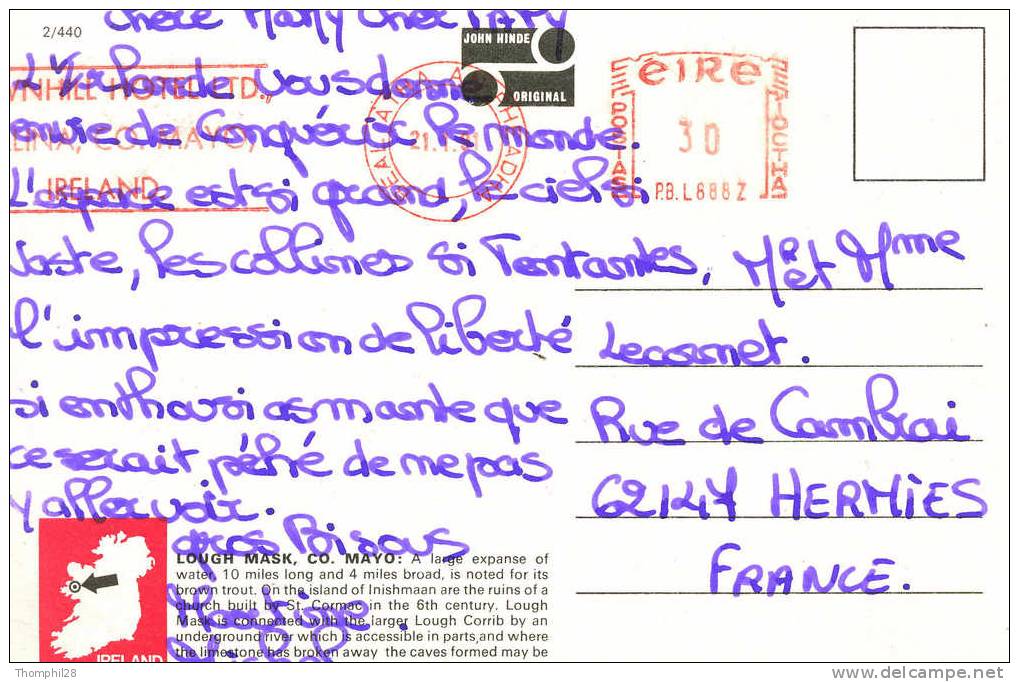 chère Mamy cher PAPY
2/440
JOHN HINDE
ORIGINAL
L'Irlande vous donne
envie de Conquérir le monde.
L'espace est si grand, le ciel si
vaste, les collines si Tentantes,
l'impression de liberté
si enthousiasmante que
ce serait péché de ne pas
y aller voir.
gros Bisous
Martine
WNHILL HOTEL LTD.,
LINA, CO. MAYO,
IRELAND
21.1.91
éire
POSTAS
30
P.B. L6882
Mr et Mme
Lecornet.
Rue de Cambrai
62147 HERMIES
FRANCE.
LOUGH MASK, CO. MAYO: A large expanse of
water, 10 miles long and 4 miles broad, is noted for its
brown trout. On the island of Inishmaan are the ruins of a
church built by St. Cormac in the 6th century. Lough
Mask is connected with the larger Lough Corrib by an
underground river which is accessible in parts, and where
the limestone has broken away the caves formed may be
IRELAND
Thomphil28
www.delcampe.net